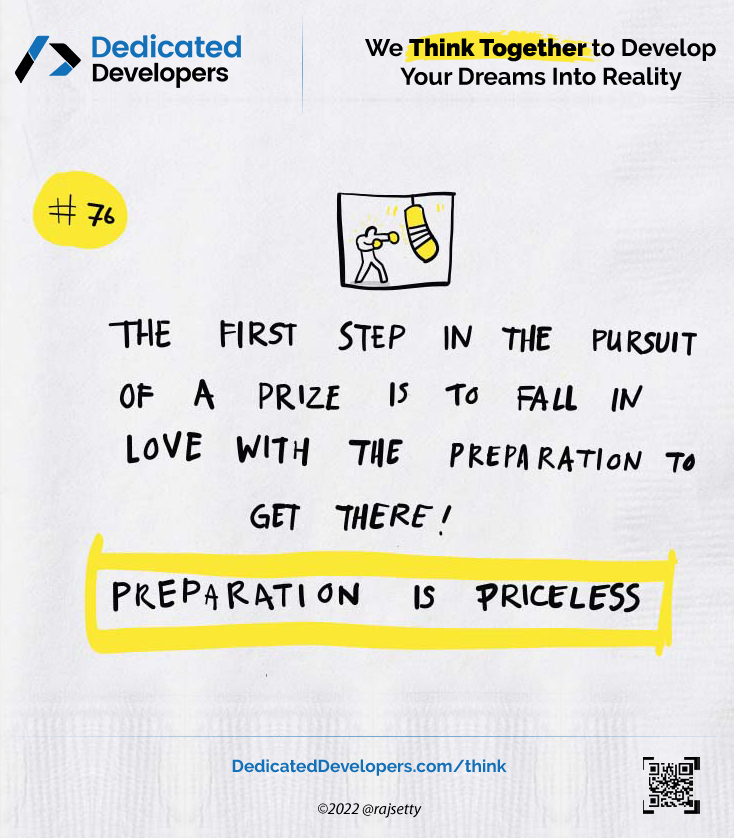 Dedicated
Developers
We Think Together to Develop
Your Dreams Into Reality
# 76
THE FIRST STEP IN THE PURSUIT
OF A PRIZE IS TO FALL IN
LOVE WITH THE PREPARATION TO
GET THERE!
PREPARATION IS PRICELESS
DedicatedDevelopers.com/think
©2022 @rajsetty